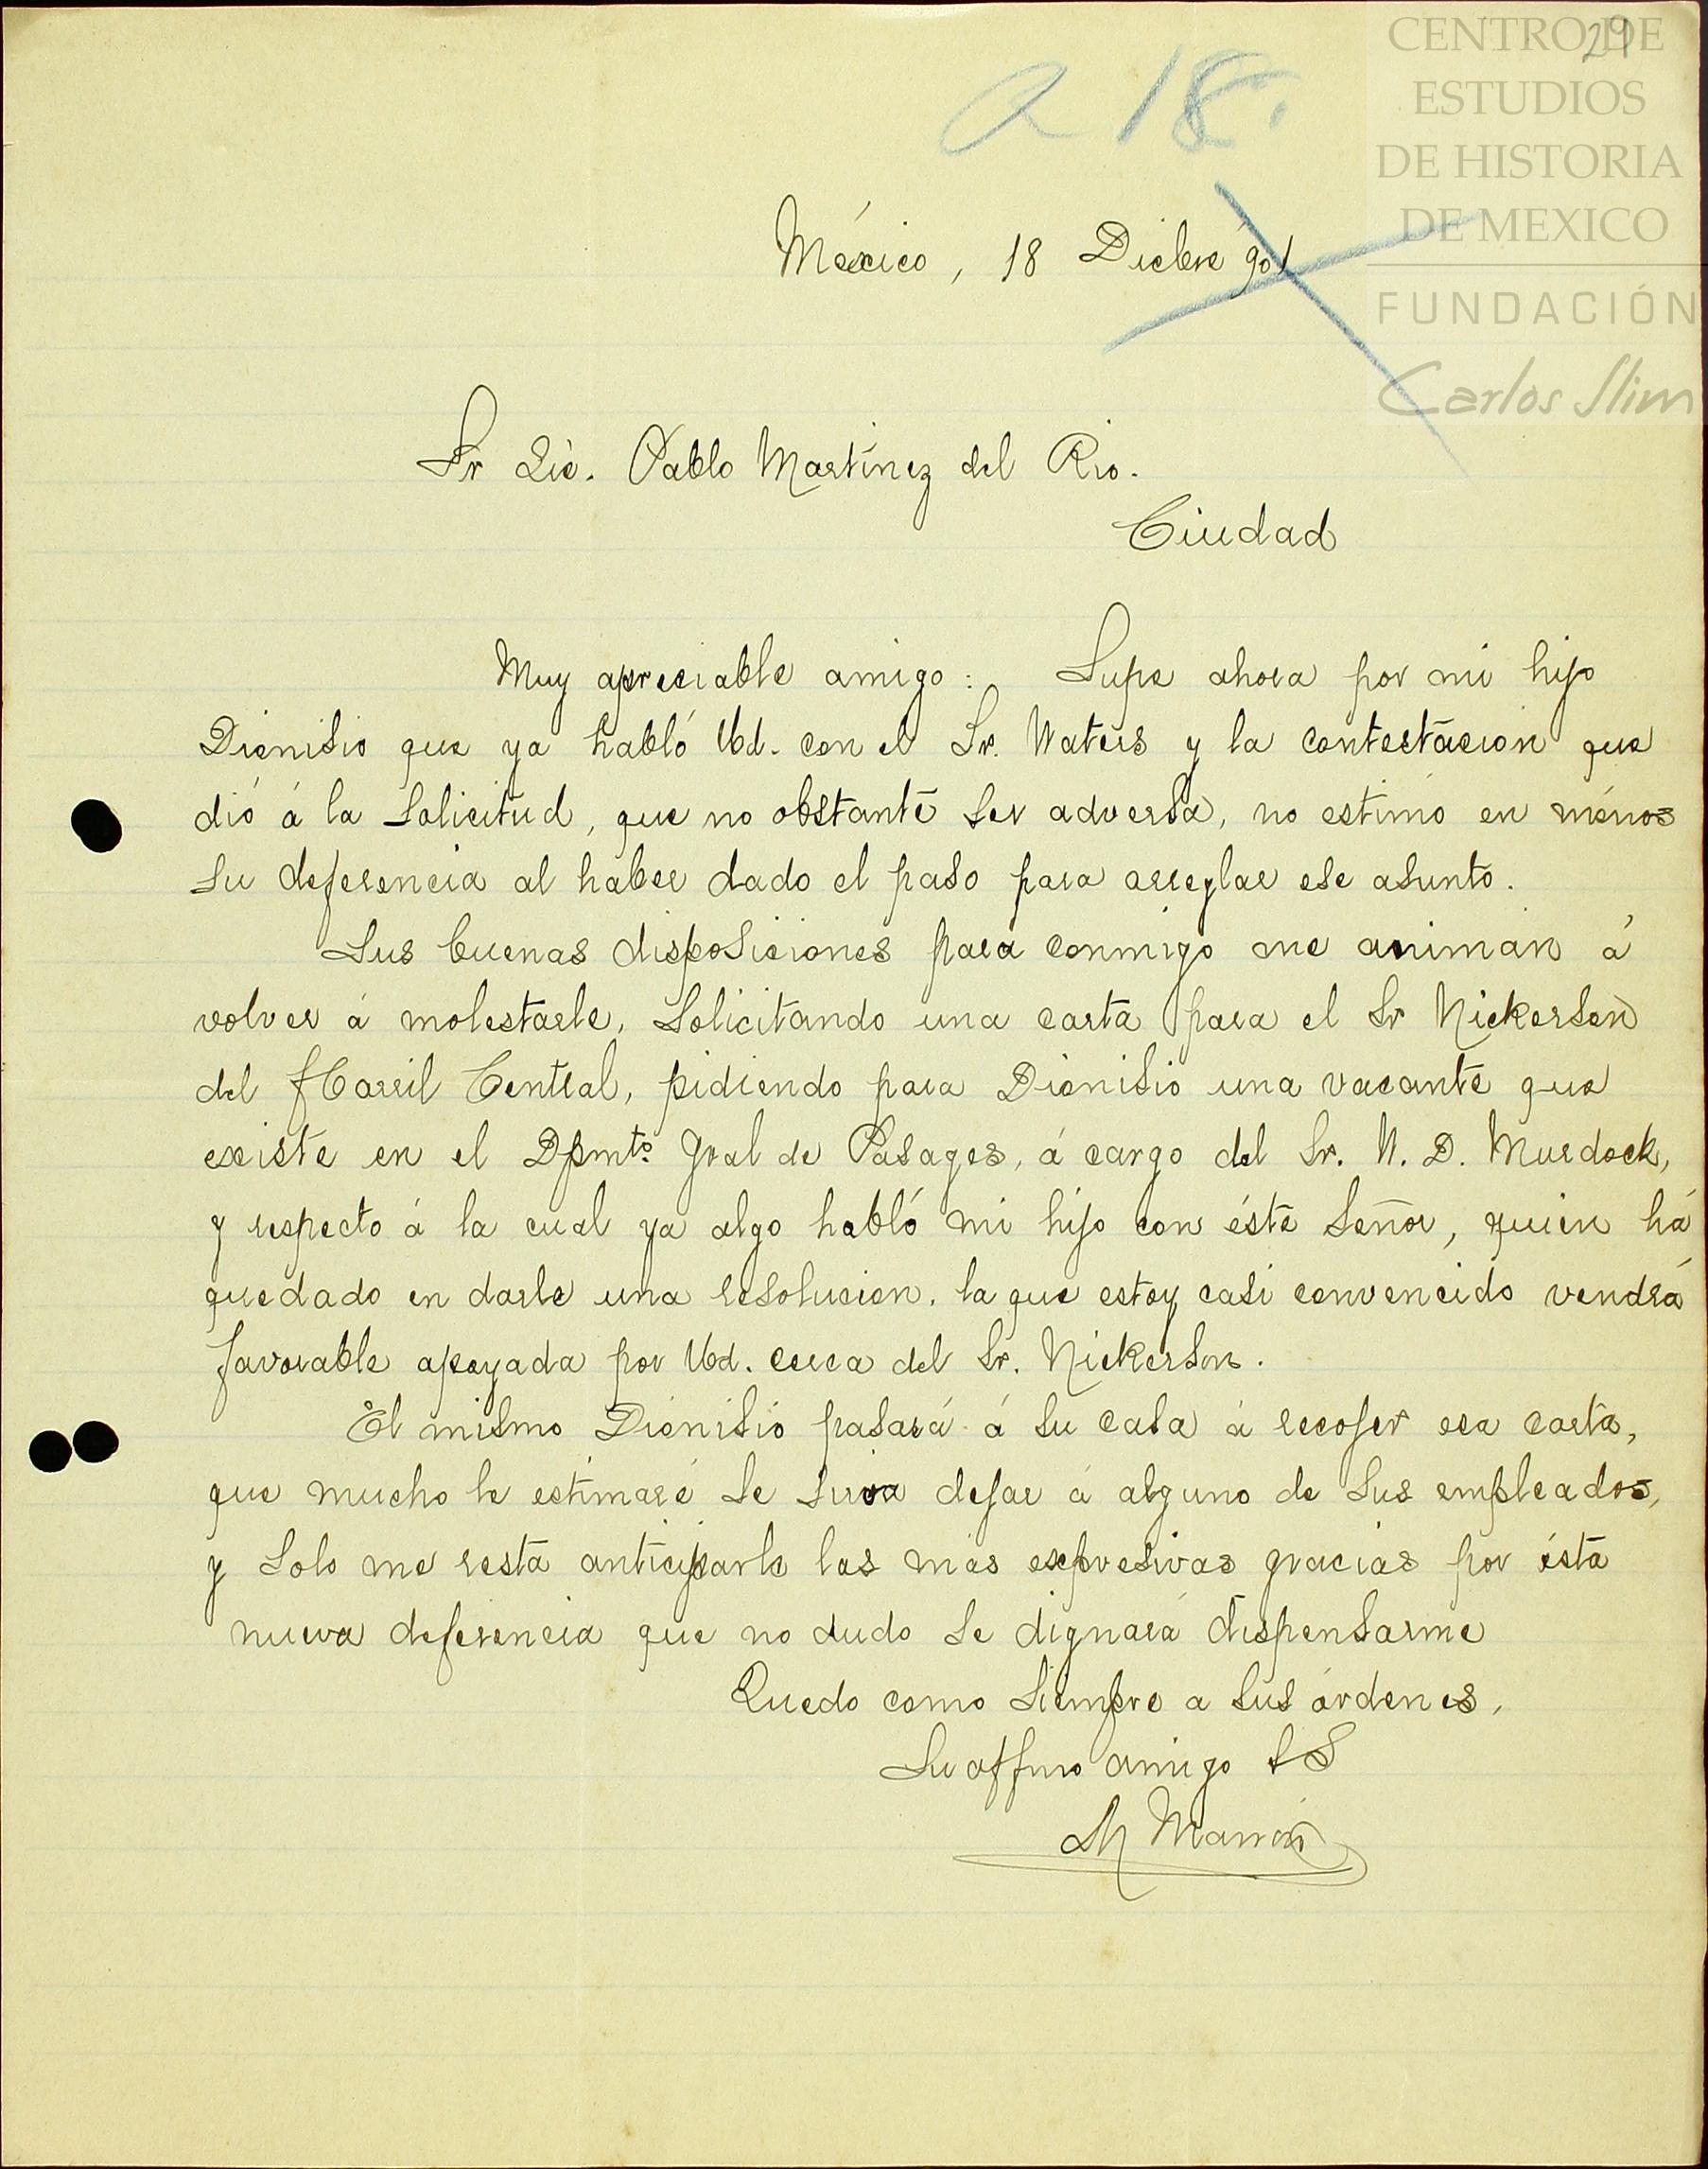 CENTRO DE
29
ESTUDIOS
DE HISTORIA
DE MEXICO
FUNDACIÓN
Carlos Slim
a 18.
México, 18 Dicbre 901
Sr Lic. Pablo Martínez del Rio.
Ciudad
Muy apreciable amigo: Supe ahora por mi hijo
Dionisio que ya habló Ud. con el Sr. Waters y la contestacion que
dió á la solicitud, que no obstante ser adversa, no estimo en ménos
su deferencia al haber dado el paso para arreglar ese asunto.
Sus buenas disposiciones para conmigo me animan á
volver á molestarle, solicitando una carta para el Sr Nickerson
del fCarril Central, pidiendo para Dionisio una vacante que
existe en el Dpmto. Gral de Pasages, á cargo del Sr. W. D. Murdock,
y respecto á la cual ya algo habló mi hijo con éste Señor, quien há
quedado en darle una resolucion, la que estoy casi convencido vendrá
favorable apoyada por Ud. cerca del Sr. Nickerson.
El mismo Dionisio pasará á su casa á recojer esa carta,
que mucho le estimaré se sirva dejar á alguno de sus empleados,
y solo me resta anticiparle las mas expresivas gracias por ésta
nueva deferencia que no dudo se dignará dispensarme
Quedo como siempre a sus órdenes,
Su affmo amigo S S
M Marrón